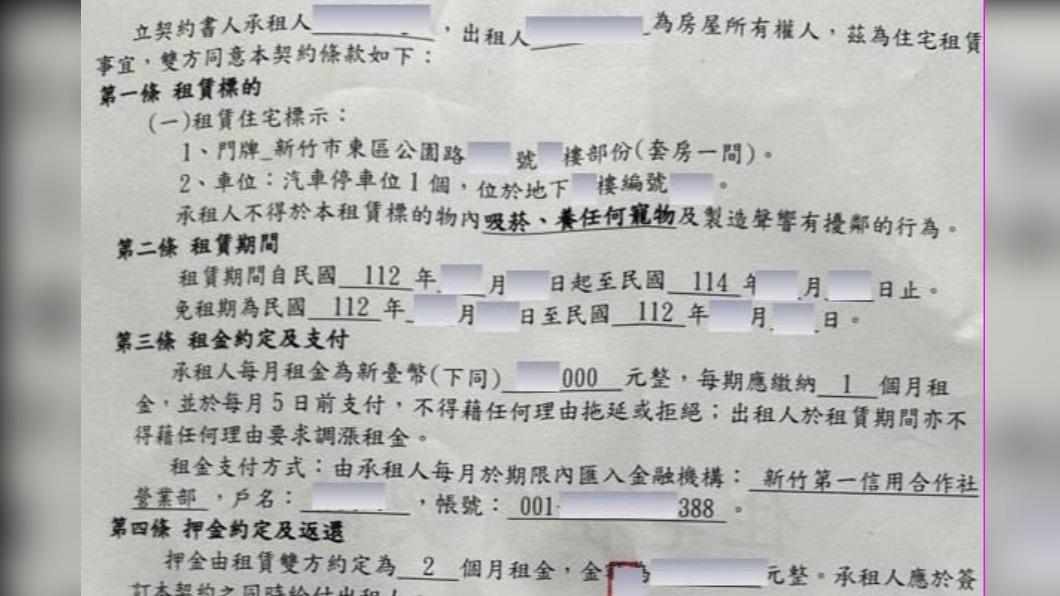 立契約書人承租人 ，出租人 為房屋所有權人，茲為住宅租賃
事宜，雙方同意本契約條款如下：
第一條 租賃標的
(一)租賃住宅標示：
1、門牌 新竹市東區公園路 號 樓部份(套房一間)。
2、車位：汽車停車位1個，位於地下 樓編號 。
承租人不得於本租賃標的物內吸菸、養任何寵物及製造聲響有擾鄰的行為。
第二條 租賃期間
租賃期間自民國 112 年 月 日起至民國 114 年 月 日止。
免租期為民國 112 年 月 日至民國 112 年 月 日。
第三條 租金約定及支付
承租人每月租金為新臺幣(下同) 000 元整，每期應繳納 1 個月租
金，並於每月5日前支付，不得藉任何理由拖延或拒絕；出租人於租賃期間亦不
得藉任何理由要求調漲租金。
租金支付方式：由承租人每月於期限內匯入金融機構： 新竹第一信用合作社
營業部 ，戶名： ，帳號： 001- 388 。
第四條 押金約定及返還
押金由租賃雙方約定為 2 個月租金，金 為 元整。承租人應於簽
訂本契約之同時給付出租人。